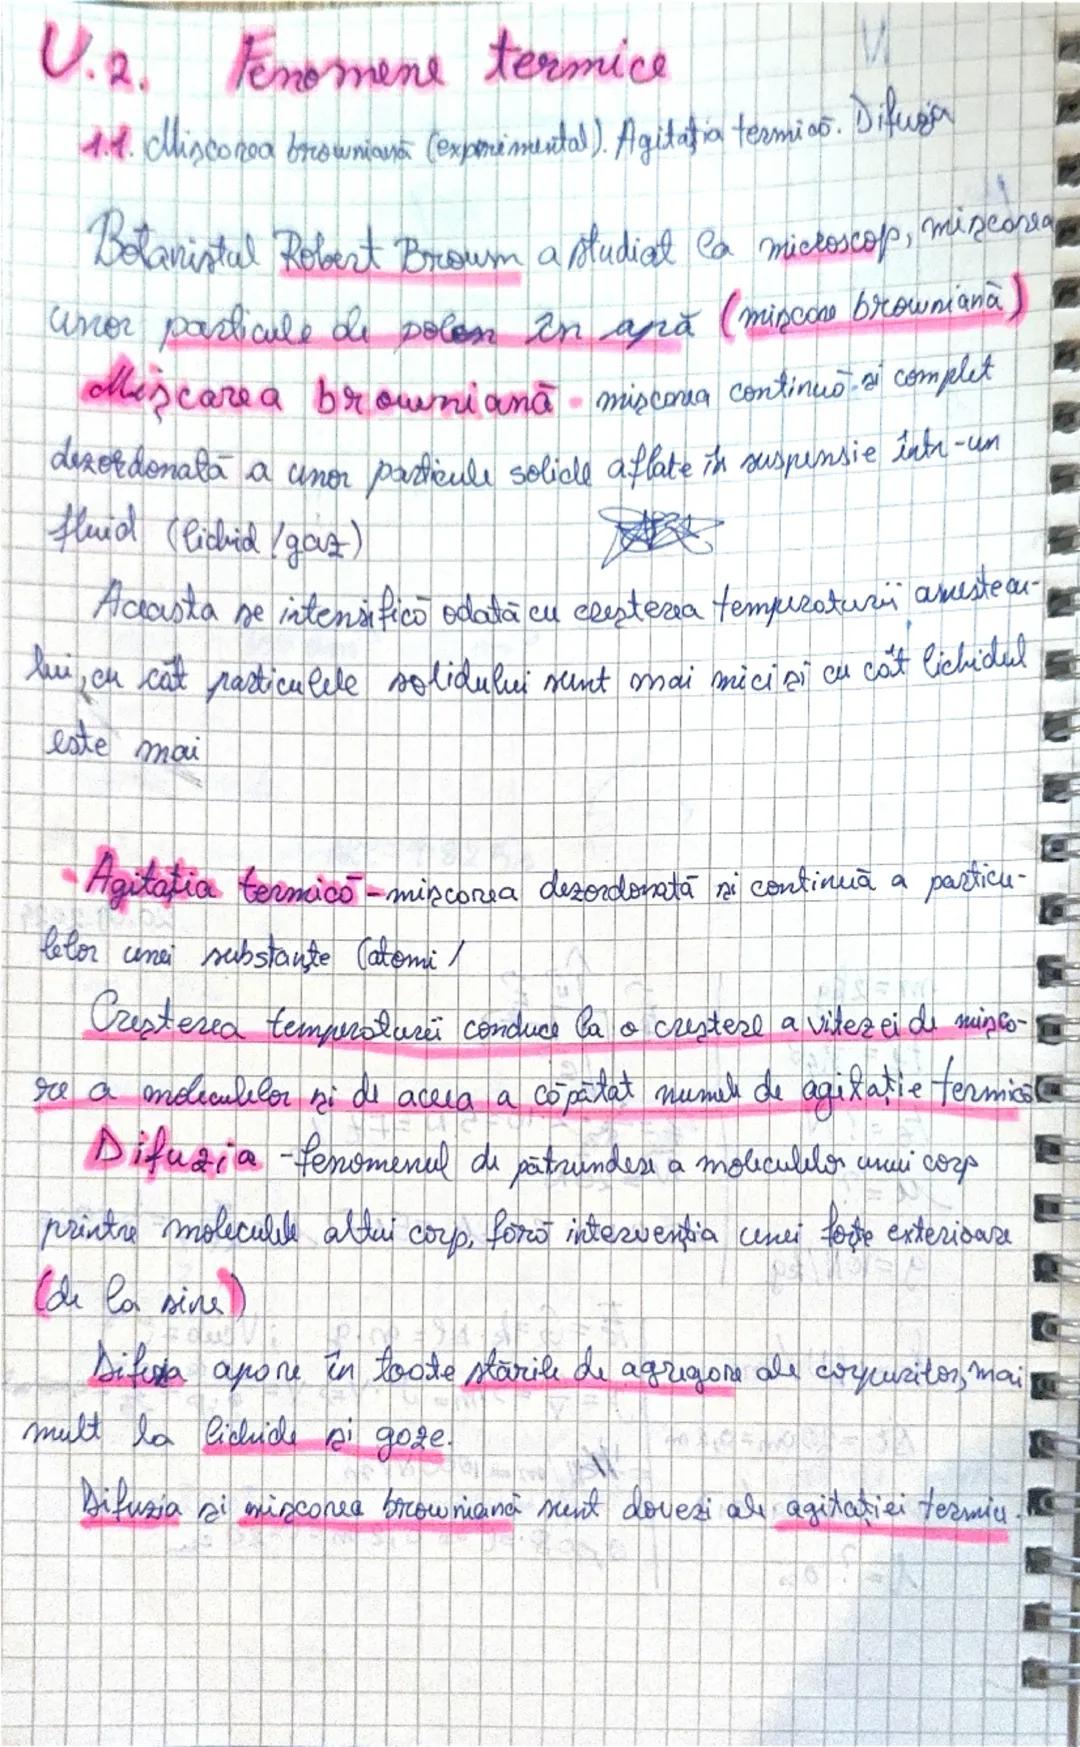 U.2. Fenomene termice
1.1. Mișcarea browniană (experimental). Agitația termică. Difuzia
Botanistul Robert Brown a studiat la microscop, mișcarea
unor particule de polen în apă (mișcare browniană)
Mișcarea browniană - mișcarea continuă și complet
dezordonată a unor particule solide aflate în suspensie într-un
fluid (lichid/gaz)
Aceasta se intensifică odată cu creșterea temperaturii amestecu-
lui, cu cât particulele solidului sunt mai mici și cu cât lichidul
este mai
• Agitația termică - mișcarea dezordonată și continuă a particu-
lelor unei substanțe (atomi /
Creșterea temperaturii conduce la o creștere a vitezei de mișca-
re a moleculelor și de aceea a căpătat numele de agitație termică
Difuzia - fenomenul de pătrundere a moleculelor unui corp
printre moleculele altui corp, fără intervenția unei forțe exterioare
(de la sine)
Difuzia apare în toate stările de agregare ale corpurilor, mai
mult la lichide și gaze.
Difuzia și mișcarea browniană sunt dovezi ale agitației termice.